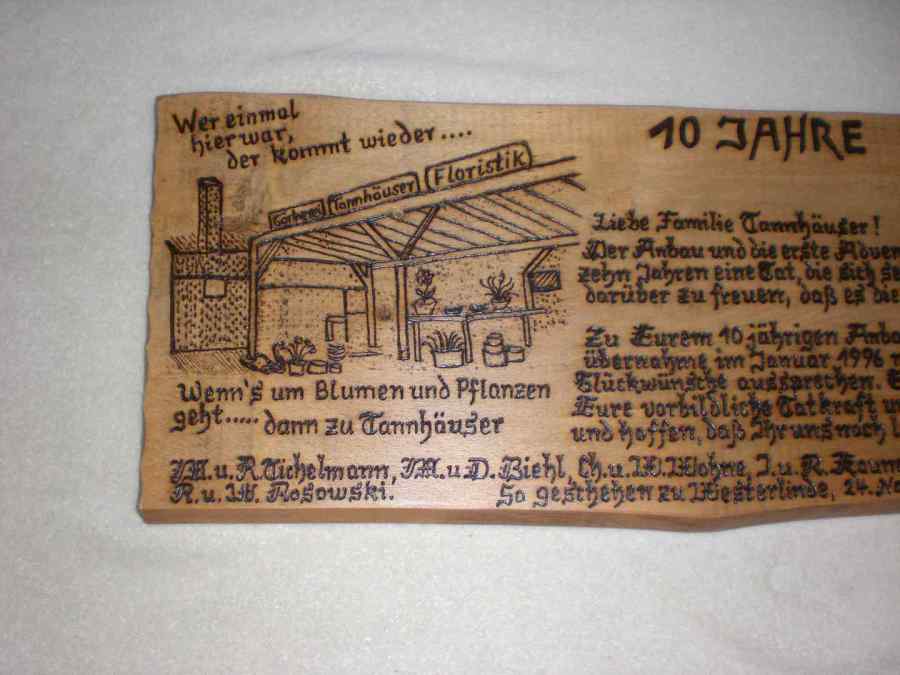 Wer einmal
hier war,
der kommt wieder....
Gärtnerei Tannhäuser Floristik
Wenn's um Blumen und Pflanzen
geht..... dann zu Tannhäuser
10 JAHRE
Liebe Familie Tannhäuser!
Der Anbau und die erste Adven
zehn Jahren eine Tat, die sich se
darüber zu freuen, daß es die
Zu Eurem 10 jährigen Anba
übernahme im Januar 1996
Glückwünsche aussprechen.
Eure vorbildliche Tatkraft u
und hoffen, daß Ihr uns noch
M. u. R. Eichelmann, M. u. D. Biehl, Ch. u. W. Wohne, J. u. R. Kaun
R. u. W. Rosowski. So geschehen zu Westerlinde, 24. No